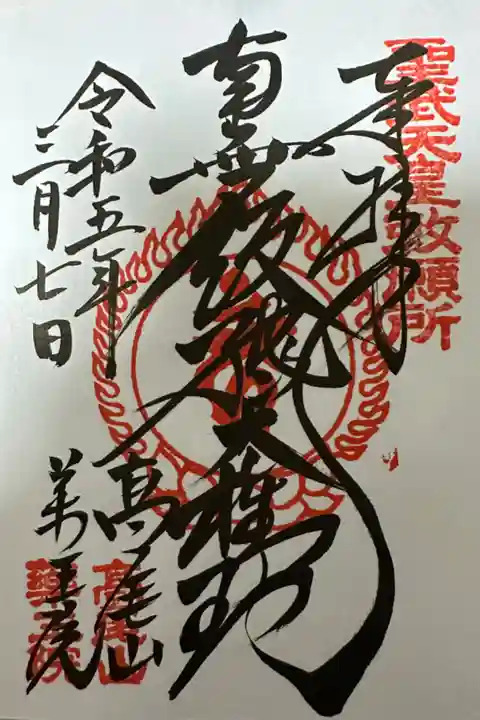 聖武天皇敕願所
奉拝
南無飯縄大権現
令和五年
三月七日
高尾山
薬王院
高尾山
薬王院